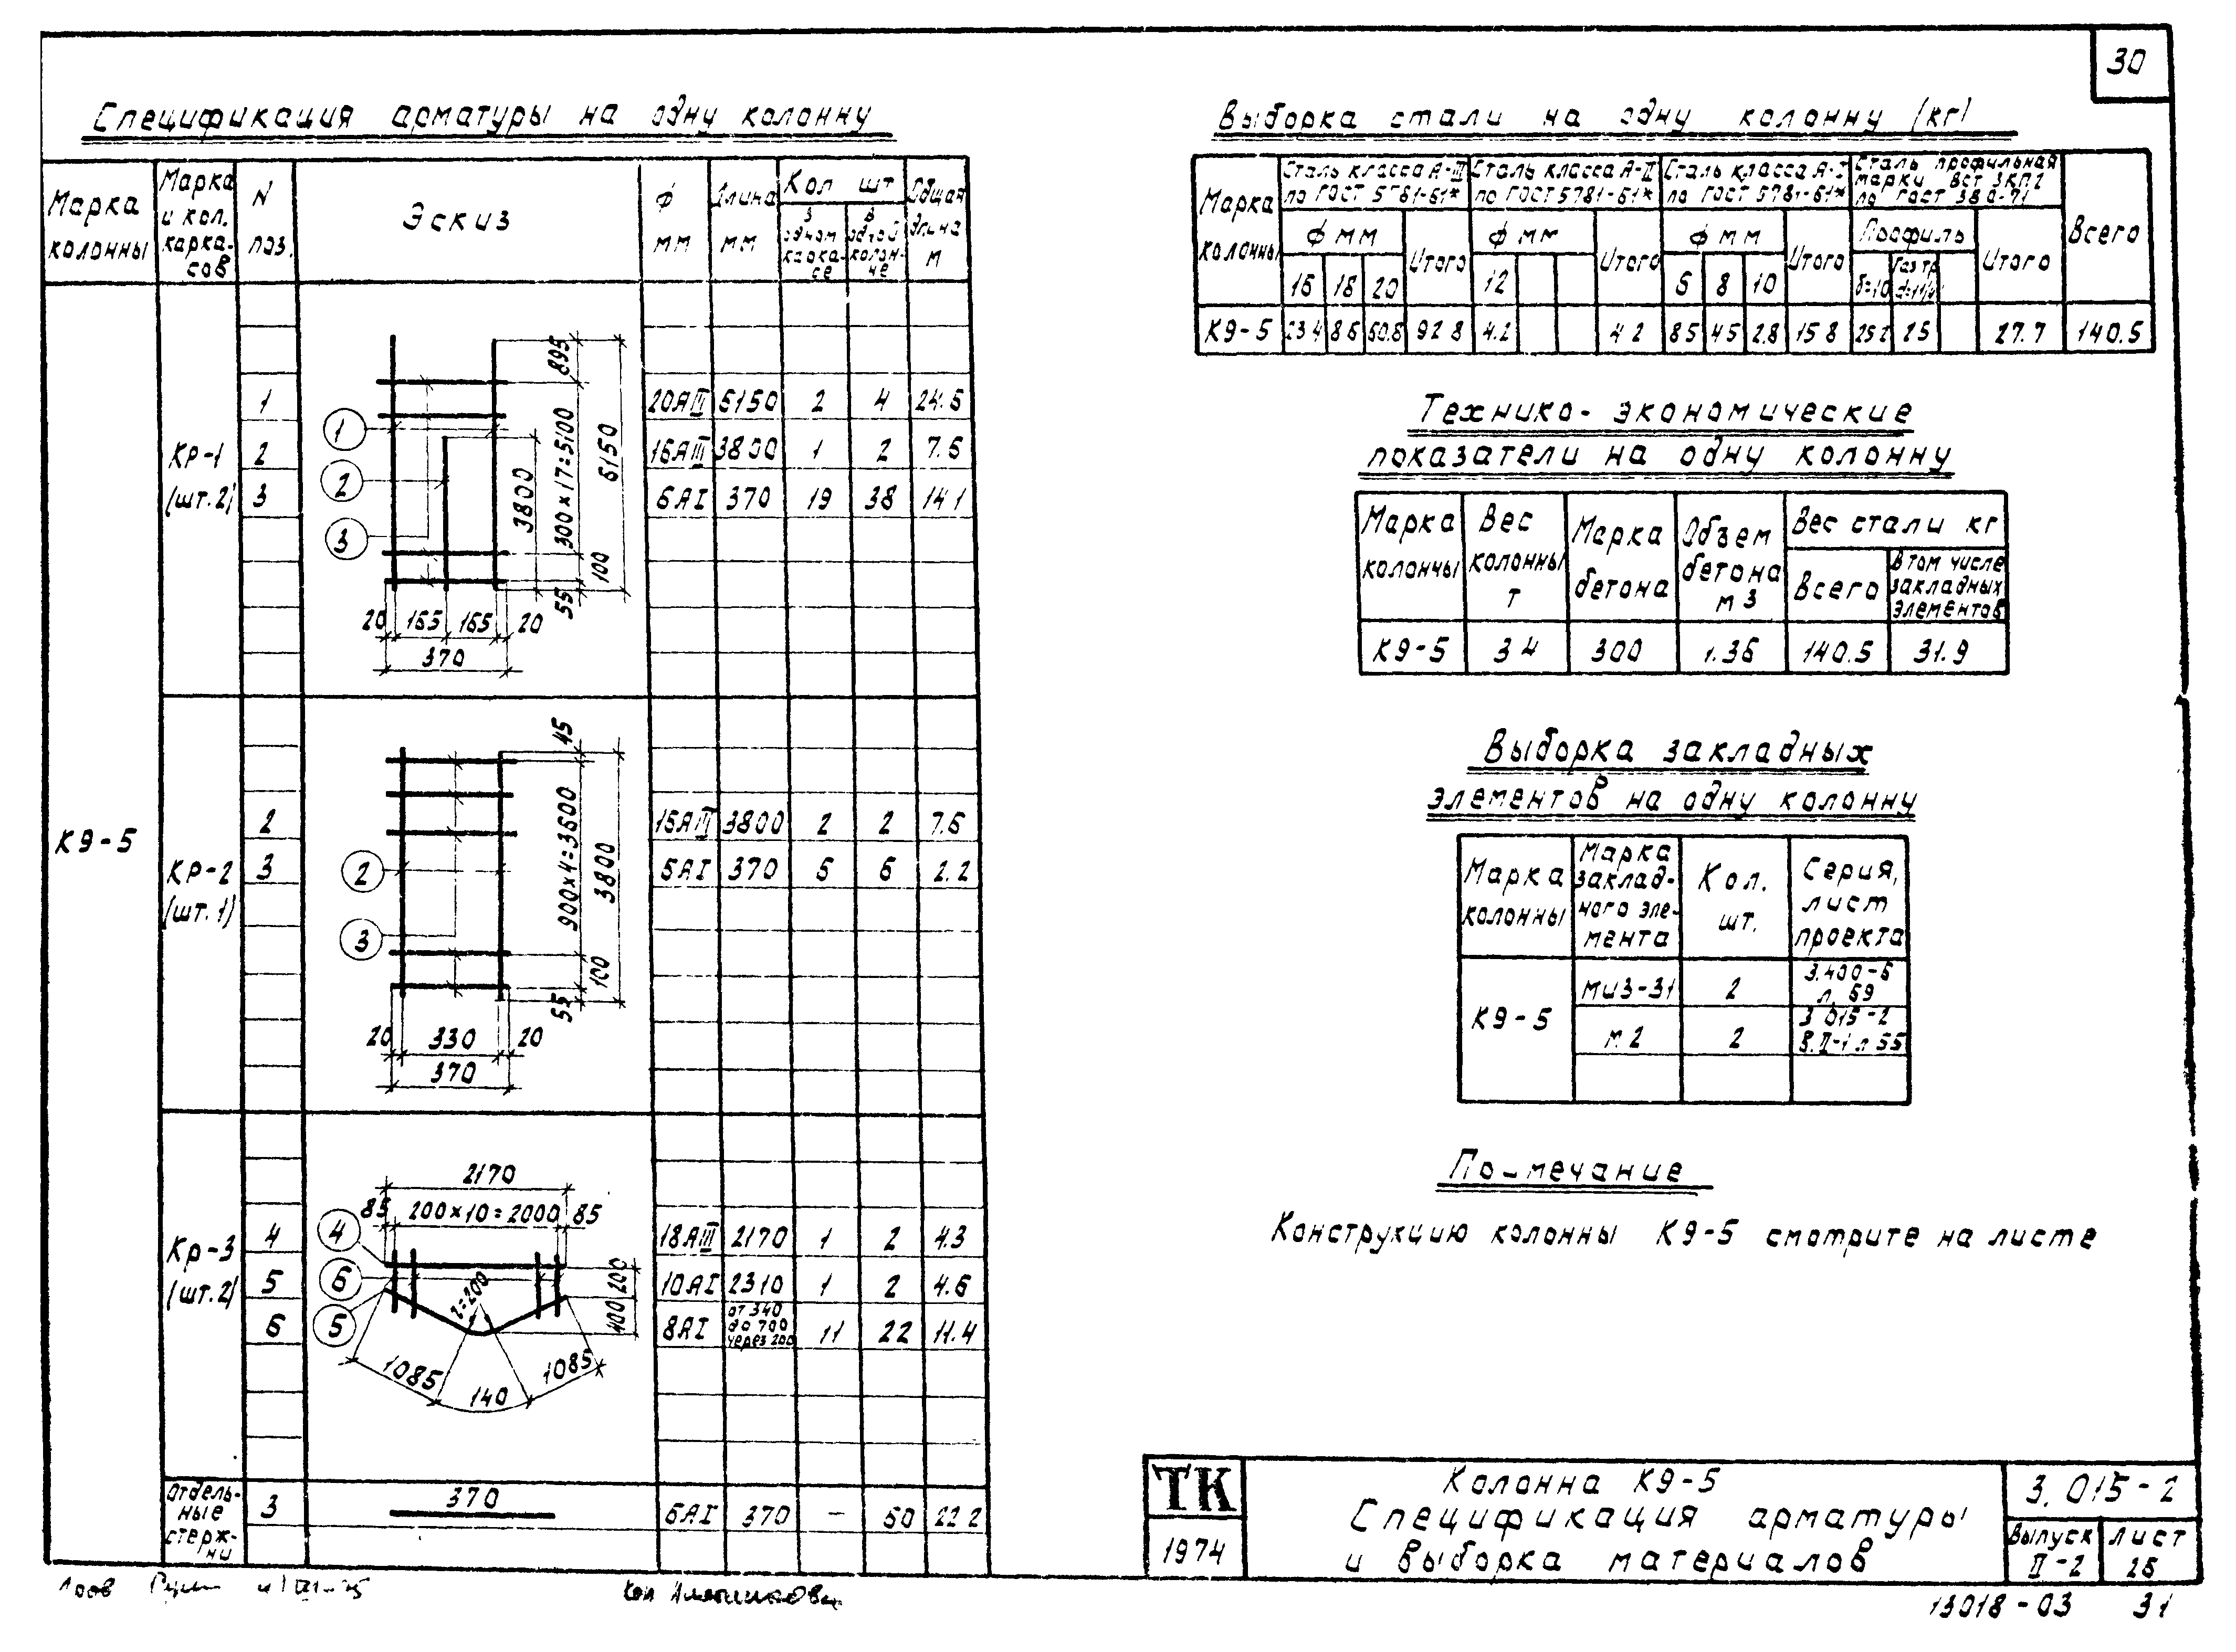 30
Спецификация арматуры на одну колонну
Марка колонны
Марка и кол. карка-сов
N поз.
Эскиз
ф мм
Длина мм
Кол шт
в одном карка-се
в одной колон-не
Общая длина м
К9-5
Кр-1 (шт.2)
1 20АIII 6150 2 4 24.6
2 16АIII 3800 1 2 7.6
3 6АI 370 19 38 14.1
1
2
3
895
300×17=5100
6150
3800
100
55
20 165 165 20
370
Кр-2 (шт.1)
2 16АIII 3800 2 2 7.6
3 6АI 370 6 6 2.2
2
3
45
900×4=3600
3800
100
55
20 330 20
370
Кр-3 (шт.2)
4 18АIII 2170 1 2 4.3
5 10АI 2310 1 2 4.6
6 8АI от 340 до 700 через 200 11 22 11.4
2170
85 200×10=2000 85
4
6
5
r=200
200
400
1085 140 1085
Отдель-ные стерж-ни
3 370 6АI 370 – 60 22.2
Выборка стали на одну колонну (кг)
Марка колонны
Сталь класса А-III по ГОСТ 5781-61*
Сталь класса А-II по ГОСТ 5781-61*
Сталь класса А-I по ГОСТ 5781-61*
Сталь профильная марки ВСт 3КП2 по ГОСТ 380-71
Всего
ф мм Итого ф мм Итого ф мм Итого Профиль Итого
16 18 20 12 6 8 10 δ=10 Газ тр d=1 1/4"
К9-5 23.4 8.6 60.8 92.8 4.2 4.2 8.5 4.5 2.8 15.8 25.2 2.5 27.7 140.5
Технико-экономические
показатели на одну колонну
Марка колонны
Вес колонны т
Марка бетона
Объем бетона м3
Вес стали кг
Всего
В том числе закладных элементов
К9-5 3.4 300 1.36 140.5 31.9
Выборка закладных
элементов на одну колонну
Марка колонны
Марка заклад-ного эле-мента
Кол. шт.
Серия, лист проекта
К9-5
МИ3-31 2 3.400-6 л. 59
М2 2 3.015-2 В.II-1 л 55
Примечание
Конструкцию колонны К9-5 смотрите на листе
ТК
1974
Колонна К9-5
Спецификация арматуры
и выборка материалов
3.015-2
Выпуск II-2
Лист 26
13018-03 31